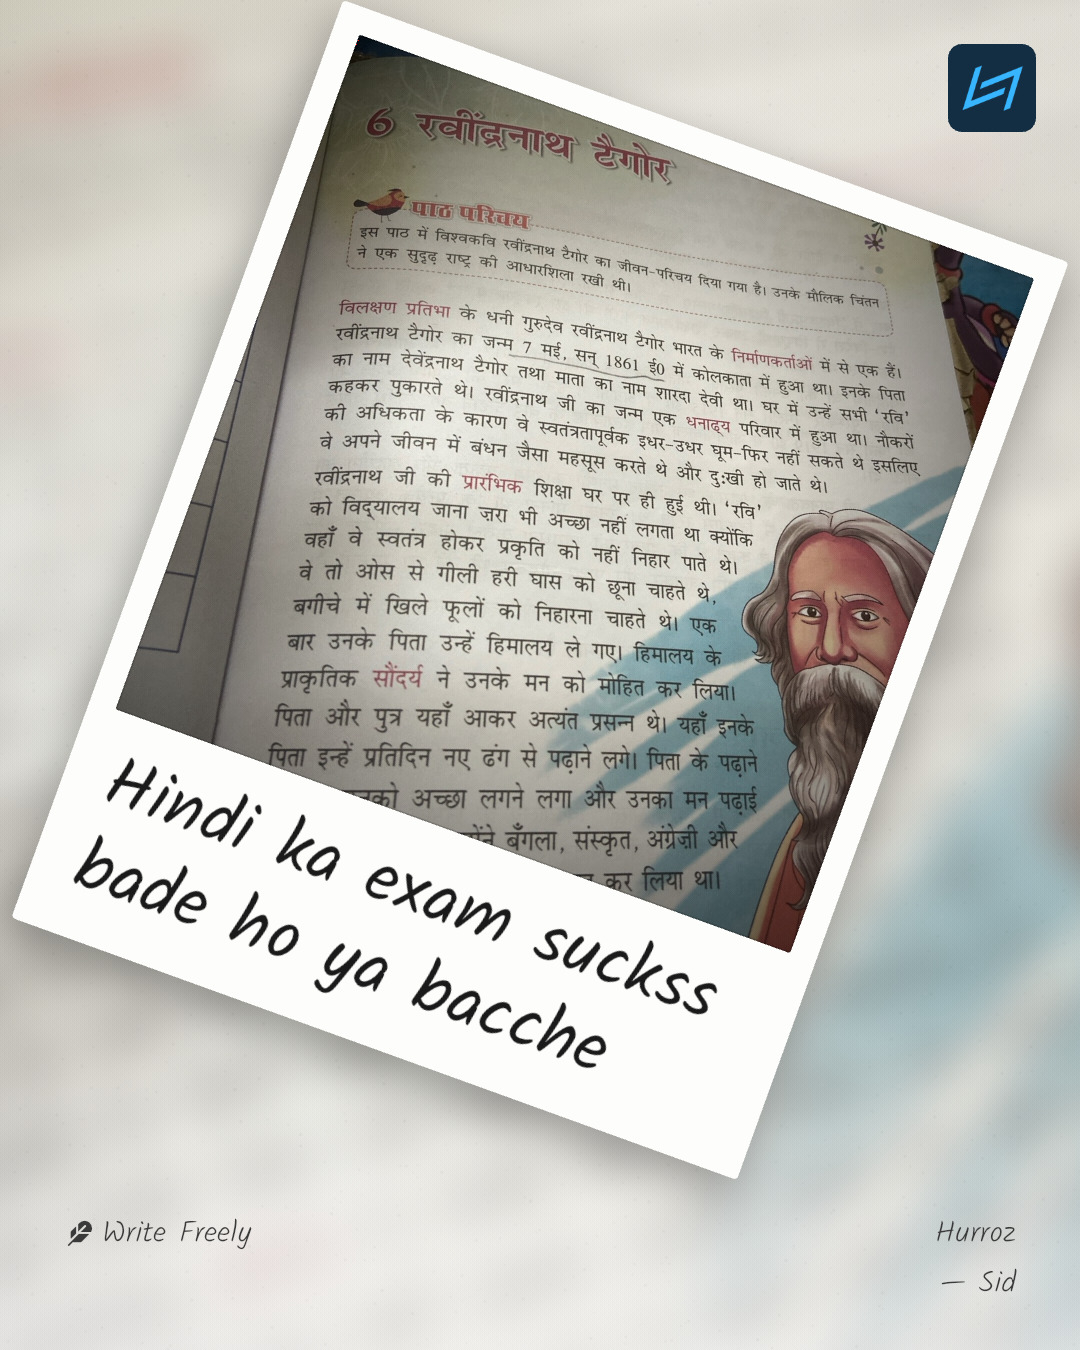 6 रवींद्रनाथ टैगोर
पाठ परिचय
इस पाठ में विश्वकवि रवींद्रनाथ टैगोर का जीवन-परिचय दिया गया है। उनके मौलिक चिंतन
ने एक सुदृढ़ राष्ट्र की आधारशिला रखी थी।
विलक्षण प्रतिभा के धनी गुरुदेव रवींद्रनाथ टैगोर भारत के निर्माणकर्ताओं में से एक हैं।
रवींद्रनाथ टैगोर का जन्म 7 मई, सन् 1861 ई० में कोलकाता में हुआ था। इनके पिता
का नाम देवेंद्रनाथ टैगोर तथा माता का नाम शारदा देवी था। घर में उन्हें सभी 'रवि'
कहकर पुकारते थे। रवींद्रनाथ जी का जन्म एक धनाढ्य परिवार में हुआ था। नौकरों
की अधिकता के कारण वे स्वतंत्रतापूर्वक इधर-उधर घूम-फिर नहीं सकते थे इसलिए
वे अपने जीवन में बंधन जैसा महसूस करते थे और दुःखी हो जाते थे।
रवींद्रनाथ जी की प्रारंभिक शिक्षा घर पर ही हुई थी। 'रवि'
को विद्यालय जाना ज़रा भी अच्छा नहीं लगता था क्योंकि
वहाँ वे स्वतंत्र होकर प्रकृति को नहीं निहार पाते थे।
वे तो ओस से गीली हरी घास को छूना चाहते थे,
बगीचे में खिले फूलों को निहारना चाहते थे। एक
बार उनके पिता उन्हें हिमालय ले गए। हिमालय के
प्राकृतिक सौंदर्य ने उनके मन को मोहित कर लिया।
पिता और पुत्र यहाँ आकर अत्यंत प्रसन्न थे। यहाँ इनके
पिता इन्हें प्रतिदिन नए ढंग से पढ़ाने लगे। पिता के पढ़ाने
अच्छा लगने लगा और उनका मन पढ़ाई
बँगला, संस्कृत, अंग्रेज़ी और
कर लिया था।
Hindi ka exam suckss
bade ho ya bacche
Write Freely
Hurroz
— Sid